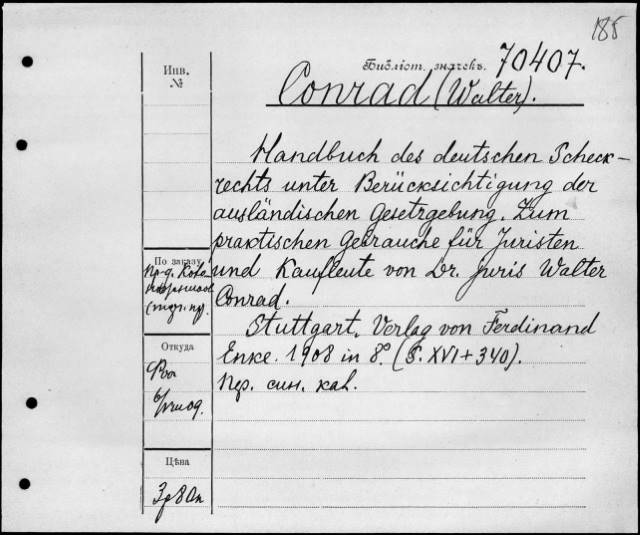 185
Инв.
№
Библіот. значекъ. 70407.
Conrad (Walter).
Handbuch des deutschen Scheck-
rechts unter Berücksichtigung der
ausländischen Gesetzgebung. Zum
praktischen Gebrauche für Juristen
und Kaufleute von Dr. juris Walter
Conrad.
Stuttgart, Verlag von Ferdinand
Enke. 1908 in 8º. (S. XVI + 340).
Пер. син. каl.
По заказу
Откуда
Цѣна
3р80к